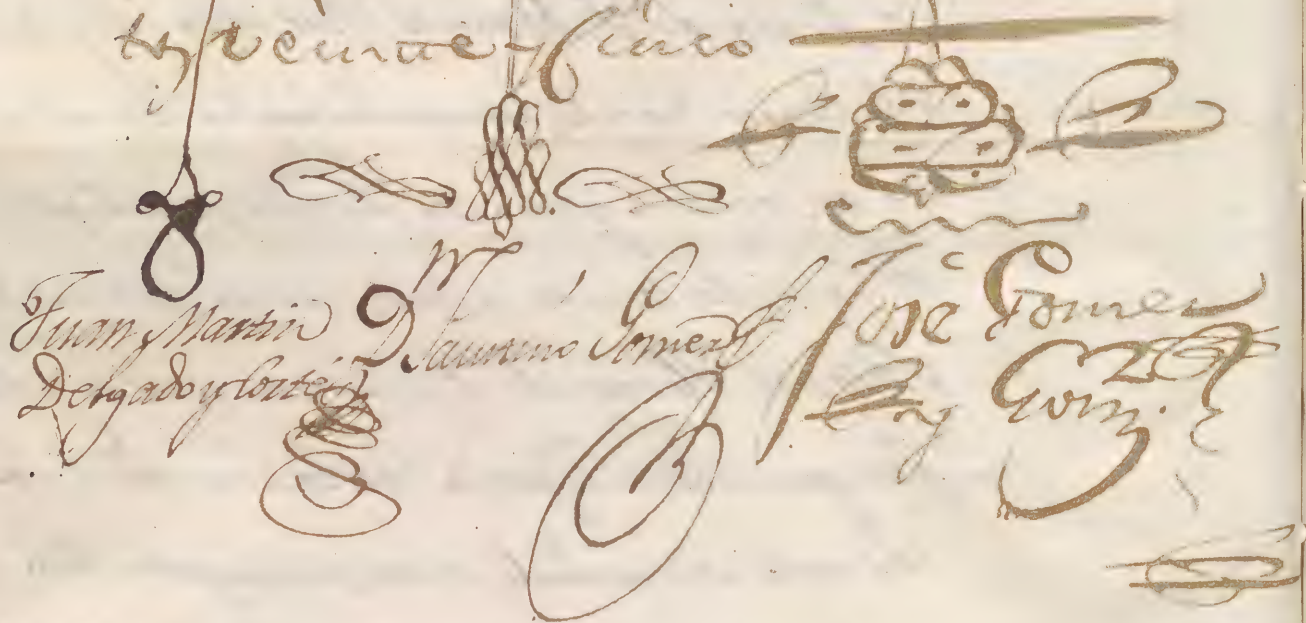 tos veinte y Cinco
Juan Martin
Delgado y Cortés
Dr Saturnino Gomez
José Gomez
y Gonz.